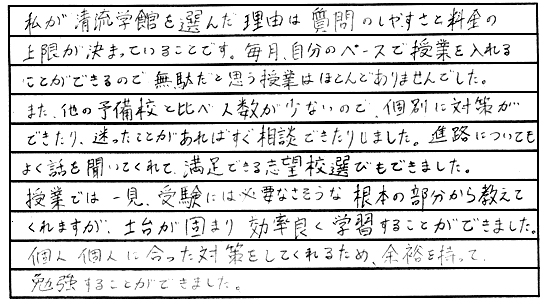 私が清流学館を選んだ理由は質問のしやすさと料金の
上限が決まっていることです。毎月、自分のペースで授業を入れる
ことができるので無駄だと思う授業はほとんどありませんでした。
また、他の予備校と比べ人数が少ないので、個別に対策が
できたり、迷ったことがあればすぐ相談できたりしました。進路についても
よく話を聞いてくれて、満足できる志望校選びもできました。
授業では一見、受験には必要なさそうな根本の部分から教えて
くれますが、土台が固まり効率良く学習することができました。
個人個人に合った対策をしてくれるため、余裕を持って
勉強することができました。